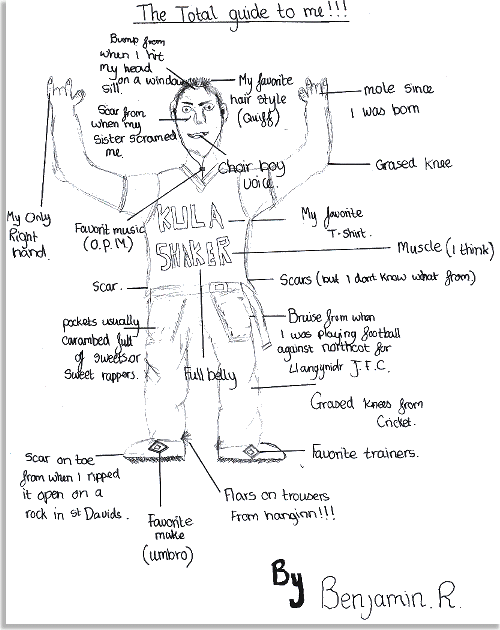 The Total guide to me!!!
Bump from
when I hit
my head
on a window
sill.
My favorite
hair style
(Quiff)
mole since
I was born
Scar from
when my
Sister scramed
me.
Choir boy
voice.
Grased knee
My Only
Right
hand.
Favorit music
(O.P.M)
KULA
SHAKER
My favorite
T-Shirt.
Muscle (I think)
Scar.
Scars (but I dont know what from)
pockets usually
carambed full
of sweets or
Sweet rappers.
Full belly
Bruise from when
I was playing football
against northcot for
Llangynidr J.F.C.
Grased knees from
Cricket.
Scar on toe
from when I ripped
it open on a
rock in st Davids.
Favorite trainers.
Flars on trousers
From hanginn!!!
Favorite
make
(umbro)
By Benjamin. R.